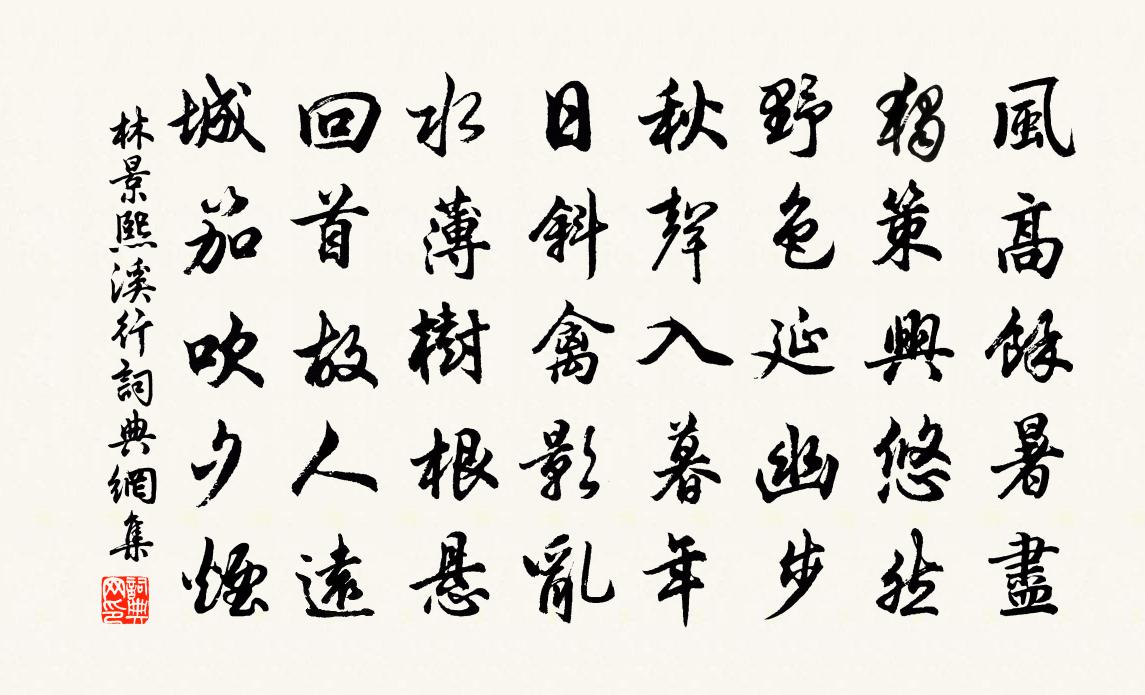 風高餘暑盡
獨策興悠然
野色延幽步
秋聲入暮年
日斜禽影亂
水薄樹根懸
回首故人遠
城笳吹夕煙
林景熙溪行詞典網集
詞典網印